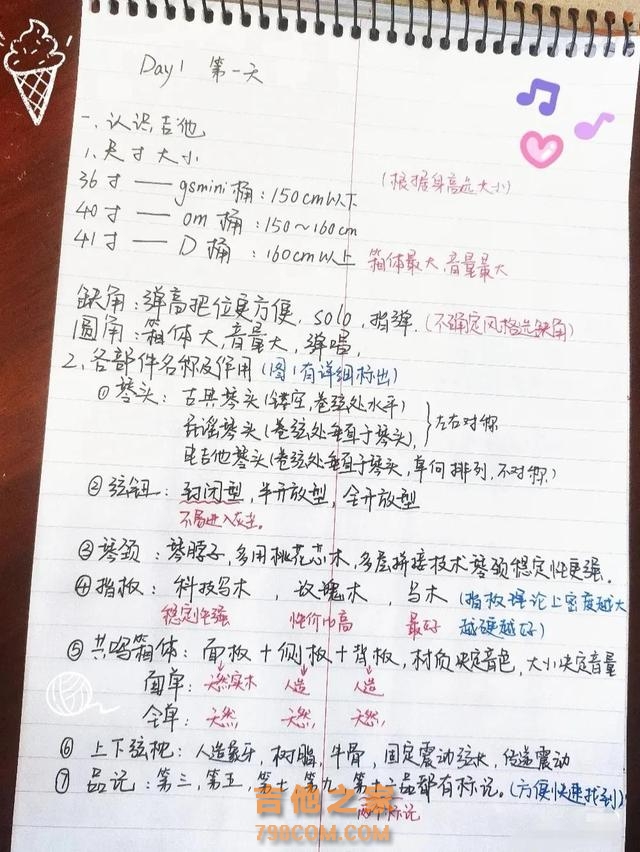 Day 1 第一天
一.认识吉他
1.尺寸大小
(根据身高选大小)
36寸 — gsmini桶:150cm以下
40寸 — om 桶:150~160cm
41寸 — D 桶:160cm以上 箱体最大,音量最大
缺角:弹高把位更方便,solo,指弹.(不确定风格选缺角)
圆角:箱体大,音量大,弹唱,
2.各部件名称及作用(图1有详细标出)
①琴头:古典琴头(镂空,卷弦处水平)
民谣琴头(卷弦处垂直于琴头)
}左右对称
电吉他琴头(卷弦处垂直于琴头,单向排列,不对称)
②弦钮:封闭型,半开放型,全开放型
不易进入灰尘。
③琴颈:琴脖子,多用桃花芯木,多层拼接技术琴颈稳定性更强.
④指板:科技乌木,玫瑰木,乌木(指板理论上密度越大
稳定性强 性价比高 最好 越硬越好)
⑤共鸣箱体:面板+侧板+背板,材质决定音色,大小决定音量
面单:天然实木 人造 人造
全单:天然, 天然, 天然,
⑥上下弦枕:人造象牙,树脂,牛骨,固定震动弦长,传递震动
⑦品记:第三,第五,第七,第九,第十二品都有标记。(方便快速找到)
两个标记
吉他之家
798COM.COM